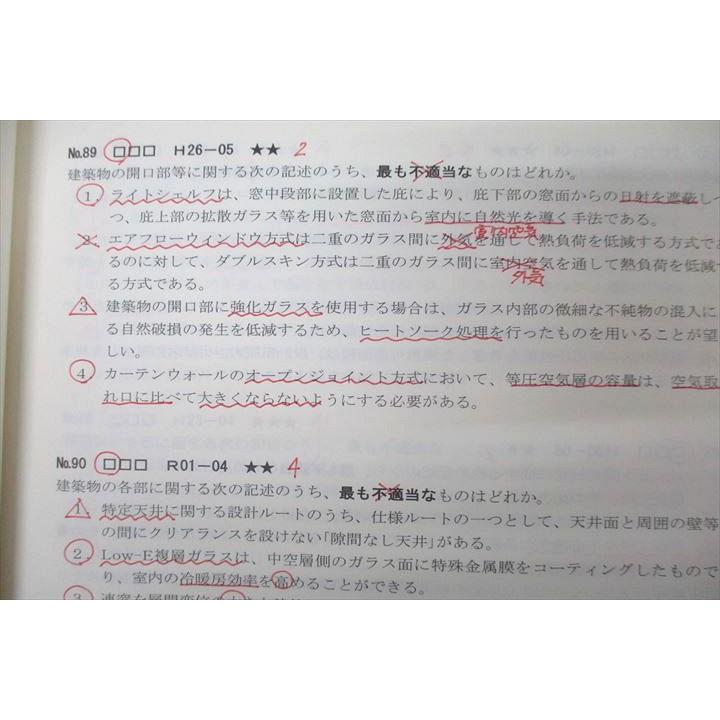 №89 □□□ H26－05 ★★ 2
建築物の開口部等に関する次の記述のうち、最も不適当なものはどれか。
1．ライトシェルフは、窓中段部に設置した庇により、庇下部の窓面からの日射を遮蔽しつ
つ、庇上部の拡散ガラス等を用いた窓面から室内に自然光を導く手法である。
室内空気
2．エアフローウィンドウ方式は二重のガラス間に外気を通して熱負荷を低減する方式であ
るのに対して、ダブルスキン方式は二重のガラス間に室内空気を通して熱負荷を低減
外気
る方式である。
3 建築物の開口部に強化ガラスを使用する場合は、ガラス内部の微細な不純物の混入に
る自然破損の発生を低減するため、ヒートソーク処理を行ったものを用いることが望
しい。
4 カーテンウォールのオープンジョイント方式において、等圧空気層の容量は、空気取
れ口に比べて大きくならないようにする必要がある。
№90 □□□ R01－04 ★★ 4
建築物の各部に関する次の記述のうち、最も不適当なものはどれか。
1 特定天井に関する設計ルートのうち、仕様ルートの一つとして、天井面と周囲の壁等
の間にクリアランスを設けない「隙間なし天井」がある。
2．Low-E複層ガラスは、中空層側のガラス面に特殊金属膜をコーティングしたもので
り、室内の冷暖房効率を高めることができる。
3